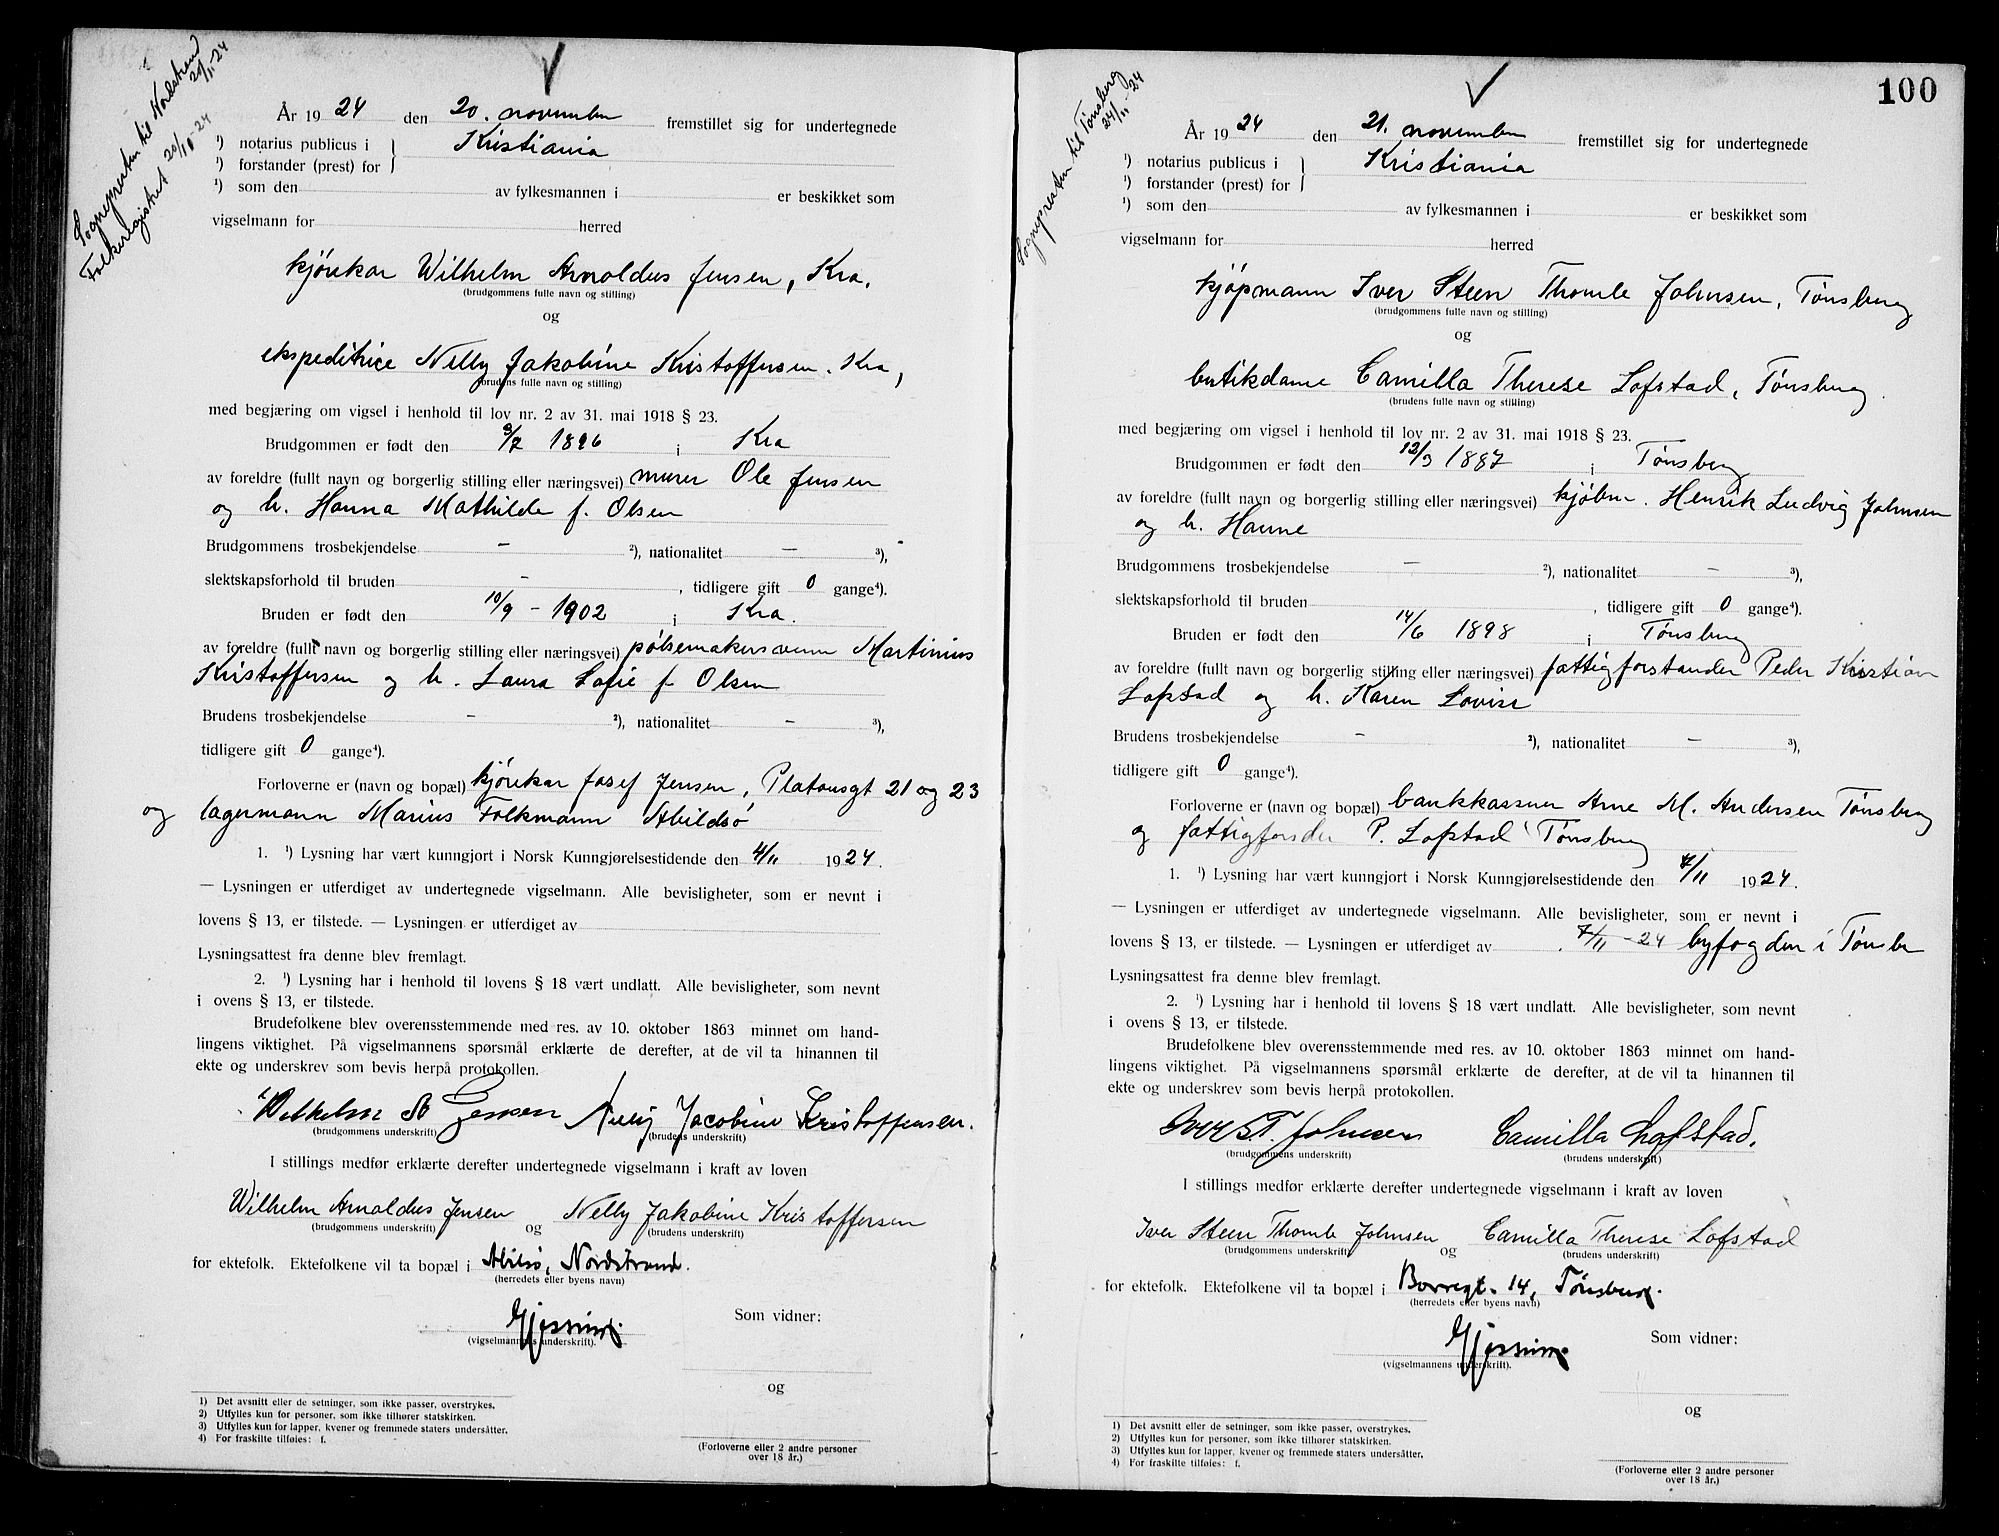 Sognepresten til Nordstrand
20/11-24
Folkeregistret 20/11-24
År 1924 den 20. november fremstillet sig for undertegnede
¹) notarius publicus i } Kristiania
¹) forstander (prest) for
¹) som den av fylkesmannen i er beskikket som
vigselmann for herred
kjørekar Wilhelm Arnoldus Jensen, Kra.
(brudgommens fulle navn og stilling)
og
ekspeditrice Nelly Jakobine Kristoffersen. Kra,
(brudens fulle navn og stilling)
med begjæring om vigsel i henhold til lov nr. 2 av 31. mai 1918 § 23.
Brudgommen er født den 9/7 1896 i Kra
av foreldre (fullt navn og borgerlig stilling eller næringsvei) murer Ole Jensen
og h. Hanna Mathilde f. Olsen
Brudgommens trosbekjendelse - ²), nationalitet - ³),
slektskapsforhold til bruden - , tidligere gift 0 gange⁴).
Bruden er født den 10/9 - 1902 i Kra.
av foreldre (fullt navn og borgerlig stilling eller næringsvei) pølsemakersvenn Martinius
Kristoffersen og h. Laura Sofie f. Olsen
Brudens trosbekjendelse - ²), nationalitet - ³),
tidligere gift 0 gange⁴).
Forloverne er (navn og bopæl) kjørekar Josef Jensen, Platousgt 21 og 23
og lagermann Marius Folkmann Abildsø
1. ¹) Lysning har vært kunngjort i Norsk Kunngjørelsestidende den 4/11 1924.
— Lysningen er utferdiget av undertegnede vigselmann. Alle bevisligheter, som er nevnt i
lovens § 13, er tilstede. — Lysningen er utferdiget av
Lysningsattest fra denne blev fremlagt.
2. ¹) Lysning har i henhold til lovens § 18 vært undlatt. Alle bevisligheter, som nevnt
i ovens § 13, er tilstede.
Brudefolkene blev overensstemmende med res. av 10. oktober 1863 minnet om hand-
lingens viktighet. På vigselmannens spørsmål erklærte de derefter, at de vil ta hinannen til
ekte og underskrev som bevis herpå protokollen.
Wilhelm A Jensen Nelly Jacobine Kristoffersen.
(brudgommens underskrift) (brudens underskrift)
I stillings medfør erklærte derefter undertegnede vigselmann i kraft av loven
Wilhelm Arnoldus Jensen og Nelly Jakobine Kristoffersen
(brudgommens underskrift) (brudens underskrift)
for ektefolk. Ektefolkene vil ta bopæl i Abilsø, Nordstrand.
(herredets eller byens navn)
Gjessing.
(vigselmannens underskrift).
Som vidner:
og
1) Det avsnitt eller de setninger, som ikke passer, overstrykes.
2) Utfylles kun for personer, som ikke tilhører statskirken.
3) Utfylles kun for lapper, kvener og fremmede staters undersåtter.
4) For fraskilte tilføies: f.
(Forloverne eller 2 andre personer
over 18 år.)
100
Sognepresten til Tønsberg
24/11-24
År 1924 den 21. november fremstillet sig for undertegnede
¹) notarius publicus i } Kristiania
¹) forstander (prest) for
¹) som den av fylkesmannen i er beskikket som
vigselmann for herred
kjøpmann Iver Steen Thomle Johnsen, Tønsberg
(brudgommens fulle navn og stilling)
og
butikdame Camilla Therese Lofstad, Tønsberg.
(brudens fulle navn og stilling)
med begjæring om vigsel i henhold til lov nr. 2 av 31. mai 1918 § 23.
Brudgommen er født den 12/3 1887 i Tønsberg
av foreldre (fullt navn og borgerlig stilling eller næringsvei) kjøbm. Henrik Ludvig Johnsen
og h. Hanne
Brudgommens trosbekjendelse - ²), nationalitet - ³),
slektskapsforhold til bruden , tidligere gift 0 gange⁴).
Bruden er født den 14/6 1898 i Tønsberg
av foreldre (fullt navn og borgerlig stilling eller næringsvei) fattigforstander Peder Kristian
Lofstad og h. Karen Lovise
Brudens trosbekjendelse - ²), nationalitet - ³),
tidligere gift 0 gange⁴).
Forloverne er (navn og bopæl) bankkasserer Arne M. Andersen Tønsberg
og P. Lofstad Tønsberg
1. ¹) Lysning har vært kunngjort i Norsk Kunngjørelsestidende den 7/11 1924.
— Lysningen er utferdiget av undertegnede vigselmann. Alle bevisligheter, som er nevnt i
lovens § 13, er tilstede. — Lysningen er utferdiget av 7/11-24 byfogden i Tønsbe
Lysningsattest fra denne blev fremlagt.
2. ¹) Lysning har i henhold til lovens § 18 vært undlatt. Alle bevisligheter, som nevnt
i ovens § 13, er tilstede.
Brudefolkene blev overensstemmende med res. av 10. oktober 1863 minnet om hand-
lingens viktighet. På vigselmannens spørsmål erklærte de derefter, at de vil ta hinannen til
ekte og underskrev som bevis herpå protokollen.
Iver S T. Johnsen Camilla Lofstad.
(brudgommens underskrift) (brudens underskrift)
I stillings medfør erklærte derefter undertegnede vigselmann i kraft av loven
Iver Steen Thomle Johnsen og Camilla Therese Lofstad
(brudgommens underskrift) (brudens underskrift)
for ektefolk. Ektefolkene vil ta bopæl i Borregt. 14, Tønsberg.
(herredets eller byens navn)
Gjessing.
(vigselmannens underskrift).
Som vidner:
og
1) Det avsnitt eller de setninger, som ikke passer, overstrykes.
2) Utfylles kun for personer, som ikke tilhører statskirken.
3) Utfylles kun for lapper, kvener og fremmede staters undersåtter.
4) For fraskilte tilføies: f.
(Forloverne eller 2 andre personer
over 18 år.)